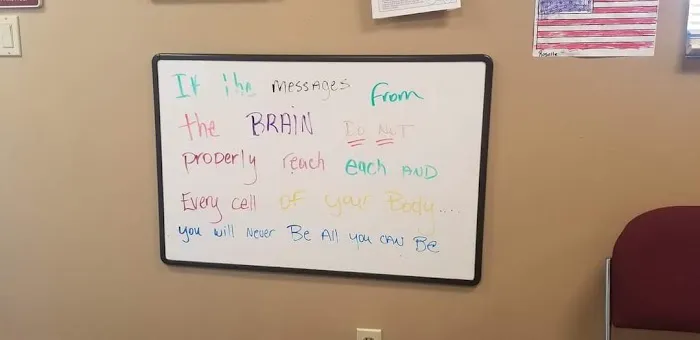 If the messages from
the BRAIN Do NOT
properly reach each AND
Every cell of your Body....
you will Never Be All you CAN Be